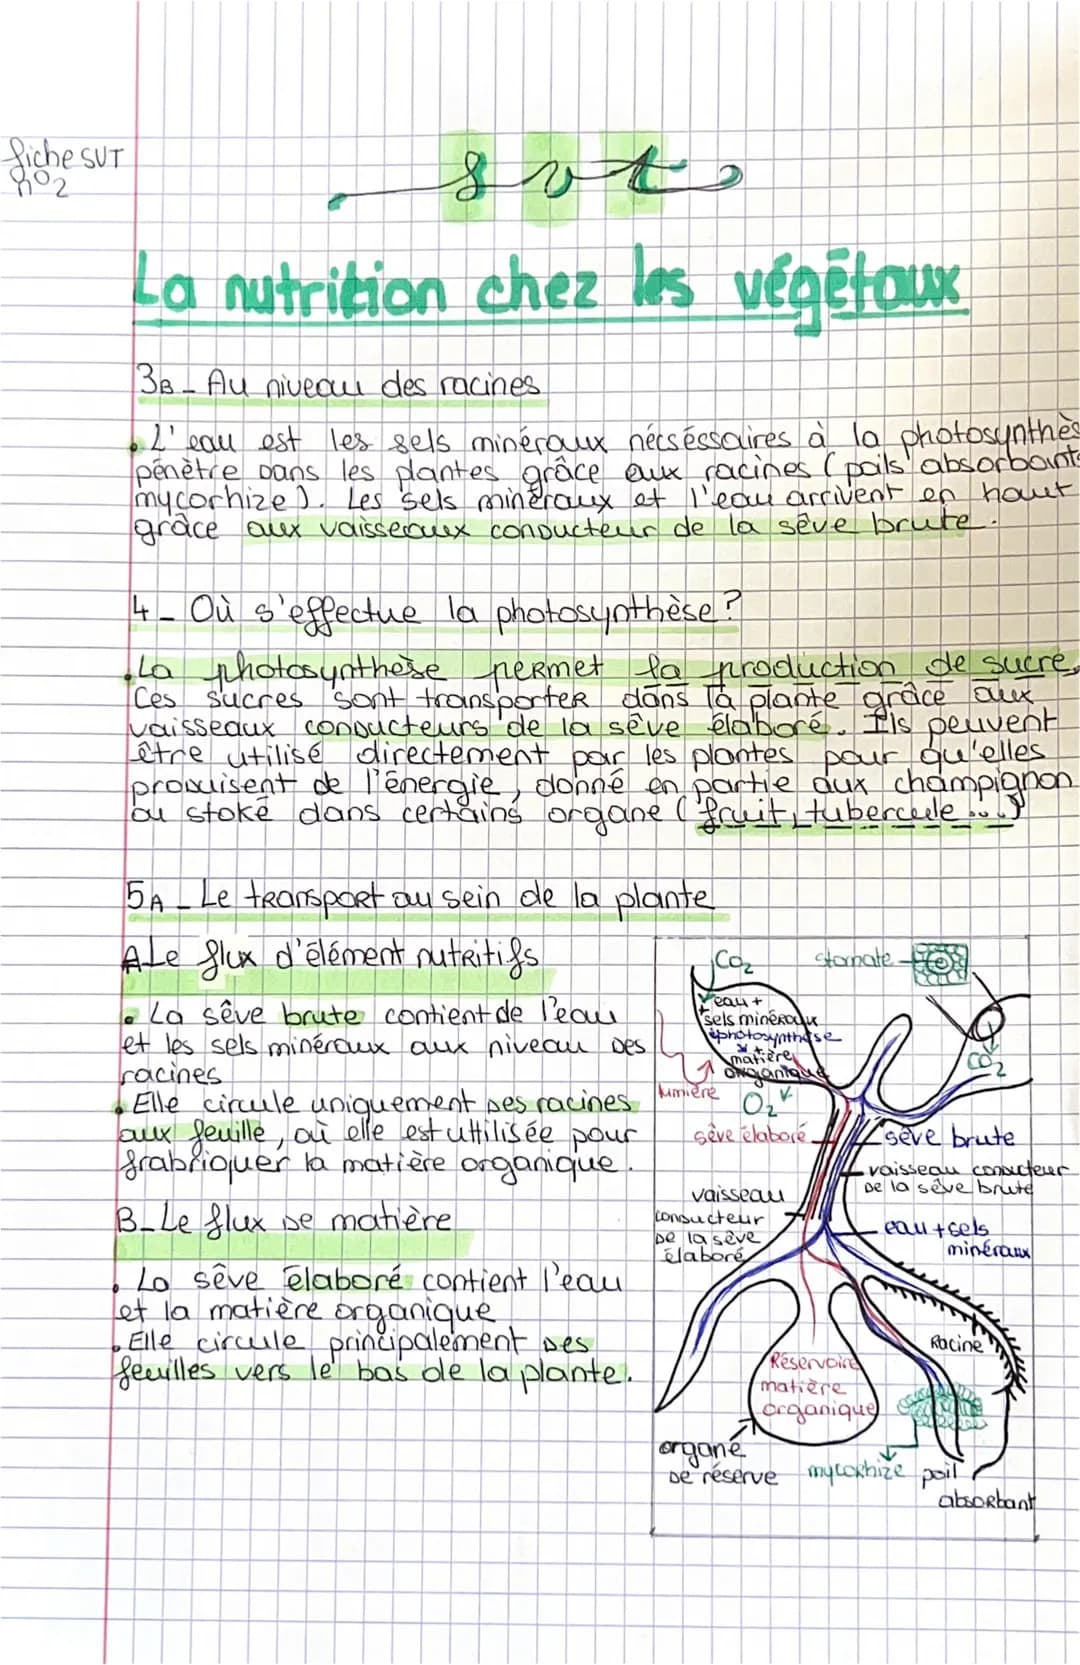 fiche SVT
n°2
svt
La nutrition chez les végétaux
3B - Au niveau des racines
• L'eau est les sels minéraux nécséssaires à la photosynthès
pénètre dans les plantes grâce aux racines (poils absorbants
mycorhize). Les sels minéraux et l'eau arrivent en haut
grâce aux vaisseaux conducteur de la sêve brute.
4 - Où s'effectue la photosynthèse?
• La photosynthèse permet la production de sucre,
Ces sucres sont transporter dans la plante grâce aux
vaisseaux conducteurs de la sêve élaboré. Ils peuvent
être utilisé directement par les plantes pour qu'elles
produisent de l'énergie, donné en partie aux champignon
ou stoké dans certains organe (fruit, tubercule...)
5A - Le transport au sein de la plante
A Le flux d'élément nutritifs
• La sêve brute contient de l'eau
et les sels minéraux aux niveau des
racines
• Elle circule uniquement des racines
aux feuille, où elle est uttilisée pour
frabriquer la matière organique.
B - Le flux de matière
• La sêve élaboré contient l'eau
et la matière organique
• Elle circule principalement des
feuilles vers le bas de la plante.
CO2
stomate
eau +
sels minéraux
photosynthèse
matière
organique
lumière
O2
CO2
sève élaboré
sève brute
vaisseau conducteur
de la sève brute
vaisseau
conducteur
de la sève
élaboré
eau + sels
minéraux
Racine
Réservoire
matière
organique
organe
de réserve
mycorhize
poil
absorbant